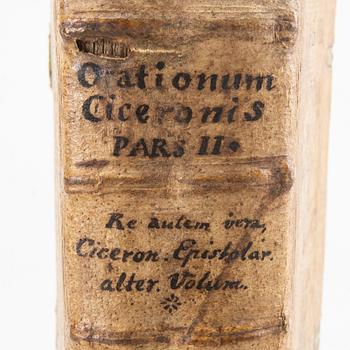 Orationum
Ciceronis
PARS II.
Re autem vera,
Ciceron. Epistolar.
alter. Volum.